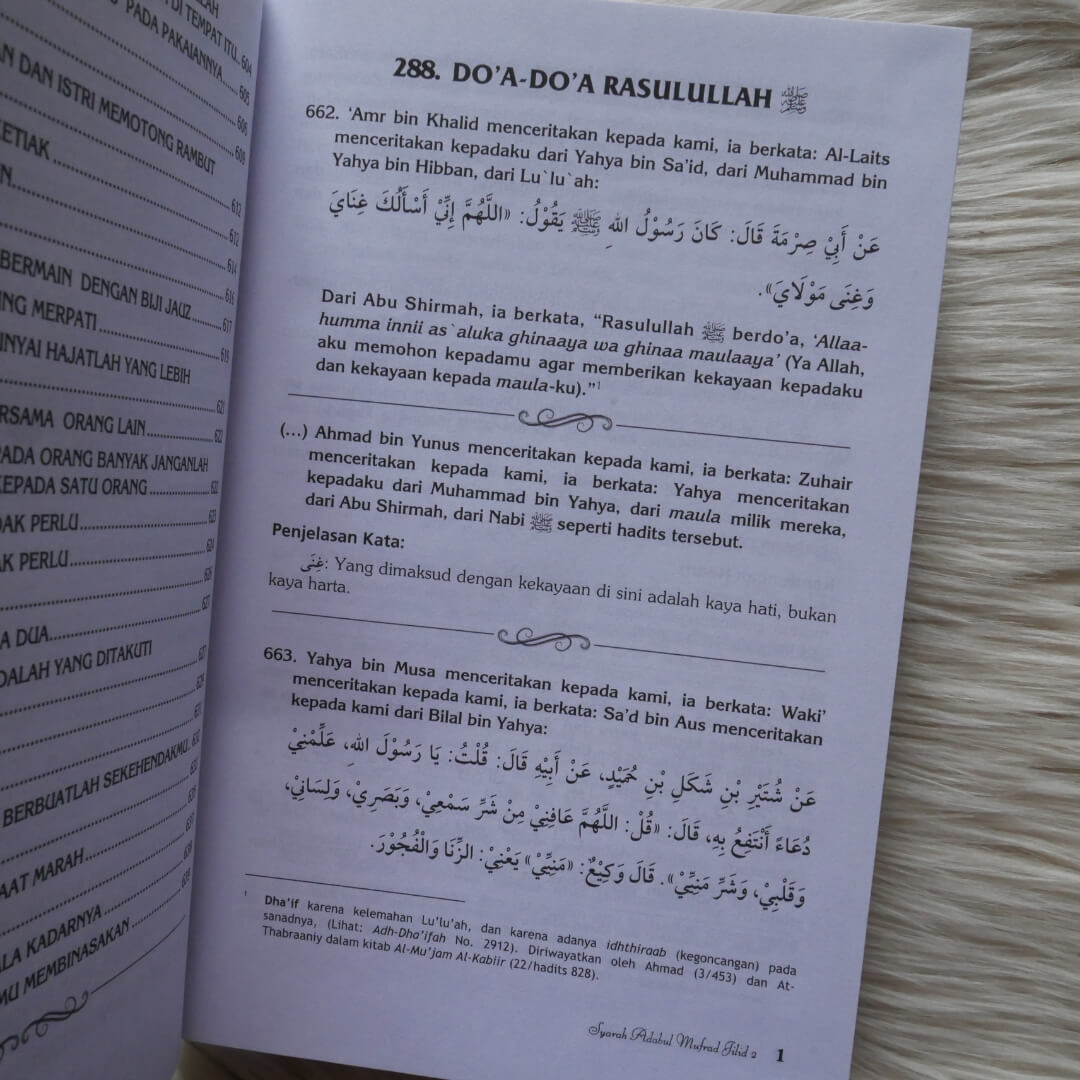 LLAH
DI TEMPAT ITU.. 604
PADA PAKAIANNYA 605
606
AN DAN ISTRI MEMOTONG RAMBUT 609
KETIAK 612
N 612
614
BERMAIN DENGAN BIJI JAUZ 616
617
NG MERPATI 619
NYAI HAJATLAH YANG LEBIH
621
ERSAMA ORANG LAIN 622
PADA ORANG BANYAK JANGANLAH
KEPADA SATU ORANG
DAK PERLU 623
AK PERLU 624
626
627
A DUA
DALAH YANG DITAKUTI 627
631
BERBUATLAH SEKEHENDAKMU. 632
AAT MARAH
ALA KADARNYA
MU MEMBINASAKAN
288. DO'A-DO'A RASULULLAH ﷺ
662. 'Amr bin Khalid menceritakan kepada kami, ia berkata: Al-Laits
menceritakan kepadaku dari Yahya bin Sa'id, dari Muhammad bin
Yahya bin Hibban, dari Lu`lu`ah:
عَنْ أَبِيْ صِرْمَةَ قَالَ: كَانَ رَسُوْلُ اللهِ ﷺ يَقُوْلُ: «اللَّهُمَّ إِنِّيْ أَسْأَلُكَ غِنَايَ
وَغِنَى مَوْلَايَ».
Dari Abu Shirmah, ia berkata, “Rasulullah ﷺ berdo'a, ‘Allaa-
humma innii as`aluka ghinaaya wa ghinaa maulaaya’ (Ya Allah,
aku memohon kepadamu agar memberikan kekayaan kepadaku
dan kekayaan kepada maula-ku).”1
(...) Ahmad bin Yunus menceritakan kepada kami, ia berkata: Zuhair
menceritakan kepada kami, ia berkata: Yahya menceritakan
kepadaku dari Muhammad bin Yahya, dari maula milik mereka,
dari Abu Shirmah, dari Nabi ﷺ seperti hadits tersebut.
Penjelasan Kata:
غِنَى: Yang dimaksud dengan kekayaan di sini adalah kaya hati, bukan
kaya harta.
663. Yahya bin Musa menceritakan kepada kami, ia berkata: Waki'
menceritakan kepada kami, ia berkata: Sa'd bin Aus menceritakan
kepada kami dari Bilal bin Yahya:
عَنْ شُتَيْرِ بْنِ شَكَلِ بْنِ حُمَيْدٍ، عَنْ أَبِيْهِ قَالَ: قُلْتُ: يَا رَسُوْلَ اللهِ، عَلِّمْنِيْ
دُعَاءً أَنْتَفِعُ بِهِ، قَالَ: «قُلْ: اللَّهُمَّ عَافِنِيْ مِنْ شَرِّ سَمْعِيْ، وَبَصَرِيْ، وَلِسَانِيْ،
وَقَلْبِيْ، وَشَرِّ مَنِيِّيْ». قَالَ وَكِيْعٌ: «مَنِيِّيْ» يَعْنِيْ: الزِّنَا وَالْفُجُوْرَ.
1 Dha'if karena kelemahan Lu'lu'ah, dan karena adanya idhthiraab (kegoncangan) pada
sanadnya, (Lihat: Adh-Dha'ifah No. 2912). Diriwayatkan oleh Ahmad (3/453) dan At-
Thabraaniy dalam kitab Al-Mu'jam Al-Kabiir (22/hadits 828).
Syarah Adabul Mufrad Jilid 2 1